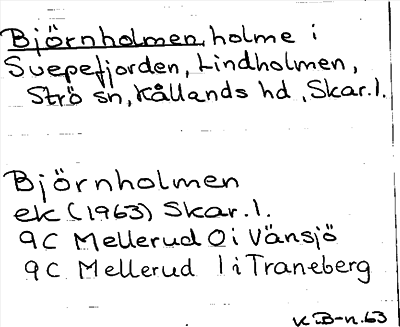 Björnholmen, holme i
Svepefjorden, Lindholmen,
Strö sn, Kållands hd, Skar.l.
Björnholmen
ek (1963) Skar.l.
9C Mellerud 0 i Vänsjö
9C Mellerud 1 i Traneberg
K B-n.63